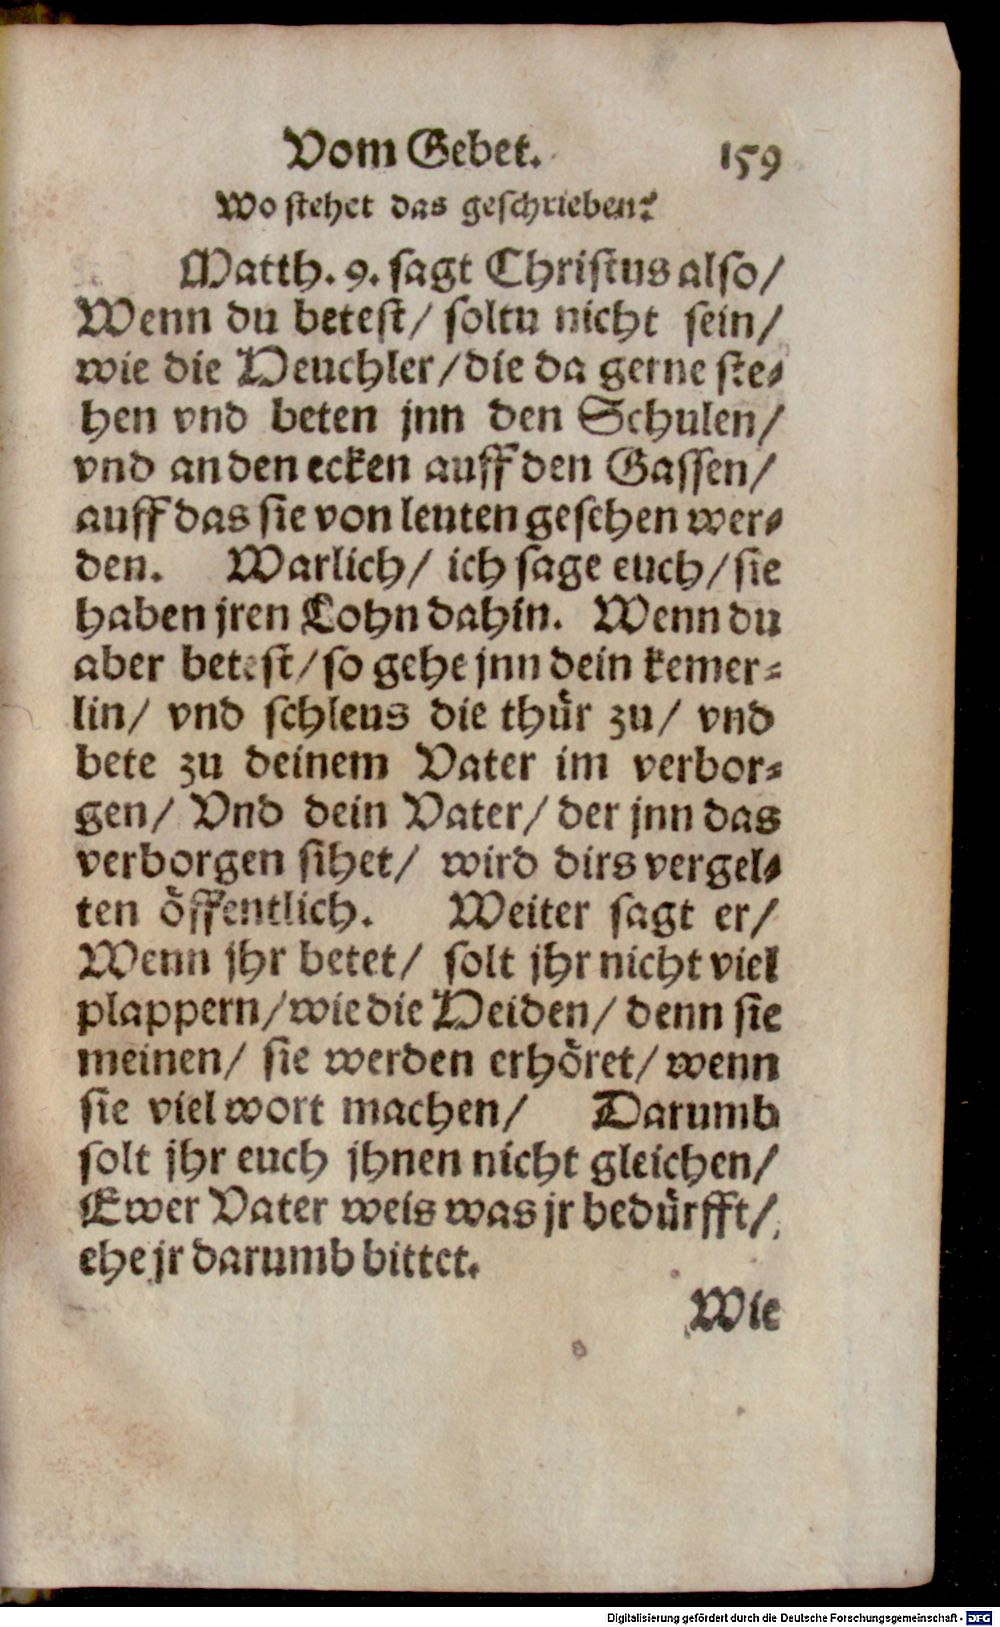 Vom Gebet. 159
Wo stehet das geschrieben?
Matth. 9. sagt Christus also/
Wenn du betest/ soltu nicht sein/
wie die Heuchler/ die da gerne ste-
hen vnd beten jnn den Schulen/
vnd an den ecken auff den Gassen/
auff das sie von leuten gesehen wer-
den. Warlich/ ich sage euch/ sie
haben jren Lohn dahin. Wenn du
aber betest/ so gehe jnn dein kemer-
lin/ vnd schleus die thür zu/ vnd
bete zu deinem Vater im verbor-
gen/ Vnd dein Vater/ der jnn das
verborgen sihet/ wird dirs vergel-
ten öffentlich. Weiter sagt er/
Wenn jhr betet/ solt jhr nicht viel
plappern/ wie die Heiden/ denn sie
meinen/ sie werden erhöret/ wenn
sie viel wort machen/ Darumb
solt jhr euch jhnen nicht gleichen/
Ewer Vater weis was jr bedürfft/
ehe jr darumb bittet.
Wie
Digitalisierung gefördert durch die Deutsche Forschungsgemeinschaft - DFG